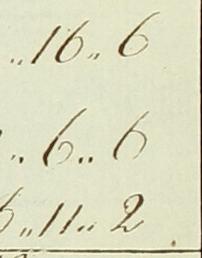 „16„6
„6„6
„11„2